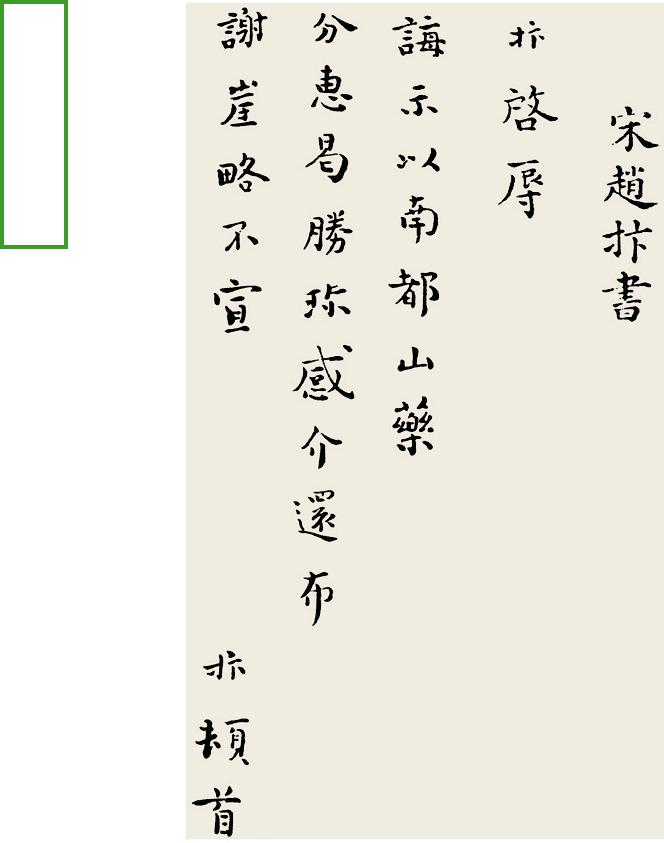 宋趙抃書
抃啓辱
誨示以南都山藥
分惠曷勝珎感介還布
謝崖略不宣
抃頓首